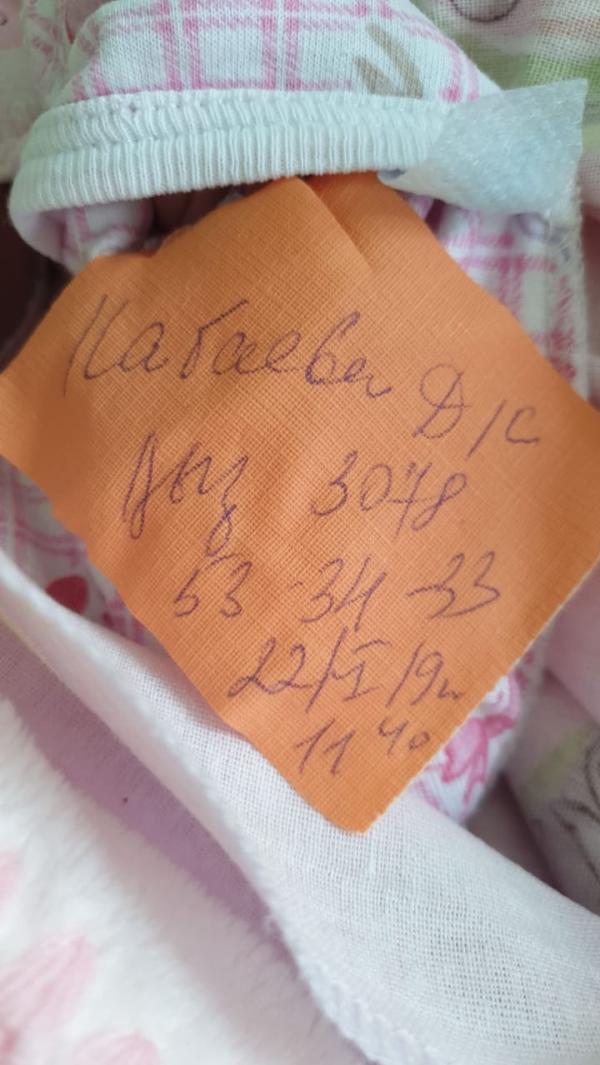 Кабаева
Д/С
вец 3078
53-34-33
22/VI/19г
11 40